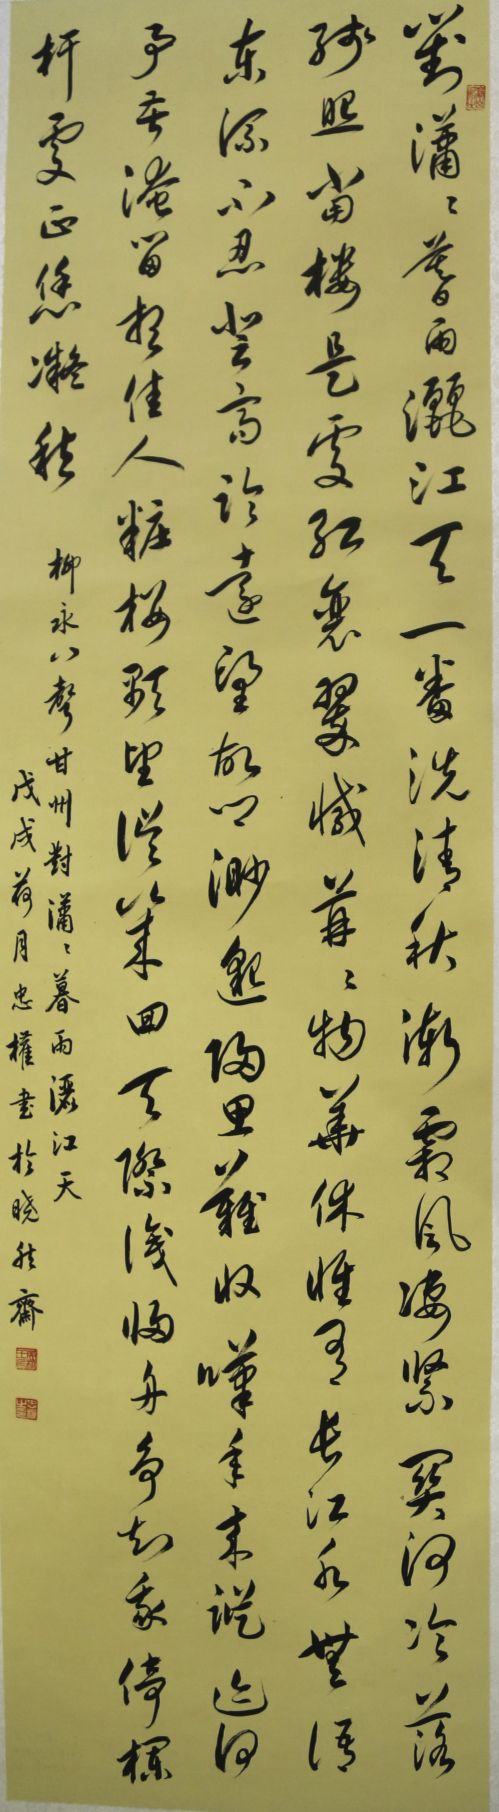 對瀟〻暮雨灑江天一番洗清秋漸霜風凄緊關河冷落
殘照當樓是處紅衰翠減苒〻物華休惟有長江水無語
東流不忍登高臨遠望故鄉渺邈歸思難收嘆年來蹤迹何
事苦淹留想佳人粧樓顒望誤幾回天際識歸舟爭知我倚欄
杆處正恁凝愁
柳永八聲甘州對瀟〻暮雨灑江天
戊戌荷月忠權書於晓然齋